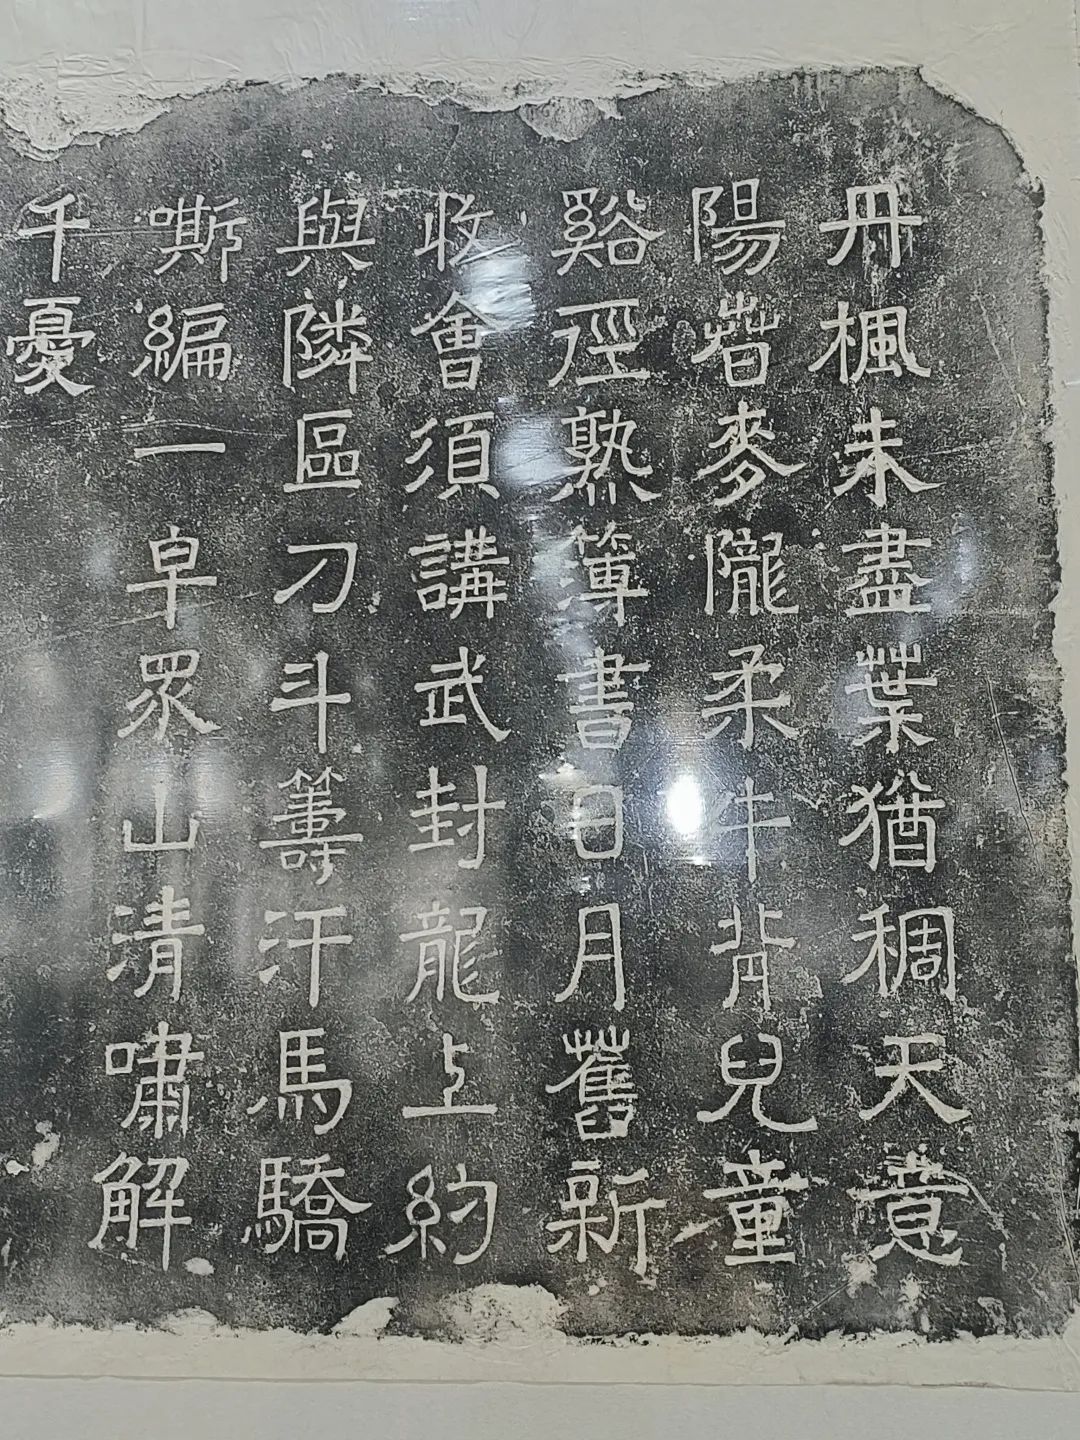 丹楓未盡葉猶稠天意
陽萅麥隴柔牛背兒童
谿徑熟簿書日月舊新
收會須講武封龍上約
與隣區刀斗籌汗馬驕
嘶編一皁眾山清嘯解
千憂